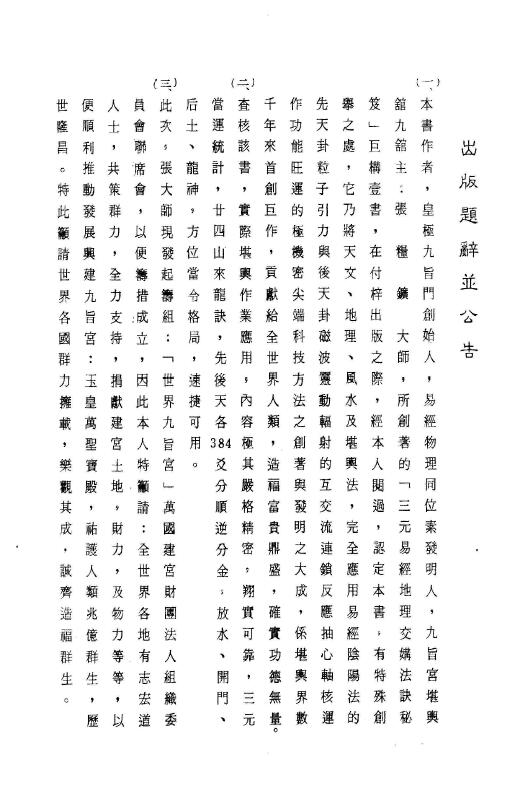 出版題辭並公告
(一)、本書作者，皇極九旨門創始人，易經物理同位素發明人，九旨宮堪輿
舘九舘主：張糧鑛大師，所創著的「三元易經地理交媾法訣秘
笈」巨構壹書，在付梓出版之際，經本人閱過，認定本書，有特殊創
舉之處，它乃將天文、地理、風水及堪輿法，完全應用易經陰陽法的
先天卦粒子引力與後天卦磁波靈動輻射的互交流連鎖反應抽心軸核運
作功能旺運的極機密尖端科技方法之創著與發明之大成，係堪輿界數
千年來首創巨作，貢獻給全世界人類，造福富貴鼎盛，確實功德無量。
(二)、查核該書，實際堪輿作業應用，內容極其嚴格精密，翔實可靠，三元
當運統計，廿四山來龍訣，先後天各384爻分順逆分金，放水、開門、
后土、龍神，方位當令格局，速捷可用。
(三)、此次，張大師現發起籌組：「世界九旨宮」萬國建宮財團法人組織委
員會聯席會，以便籌措成立，因此本人特籲請：全世界各地有志宏道
人士，共策群力，全力支持，捐獻建宮土地，財力，及物力等等，以
便順利推動發展興建九旨宮：玉皇萬聖寶殿，祐護人類兆億群生，歷
世隆昌。特此籲請世界各國群力擁載，樂觀其成，誠齊造福群生。